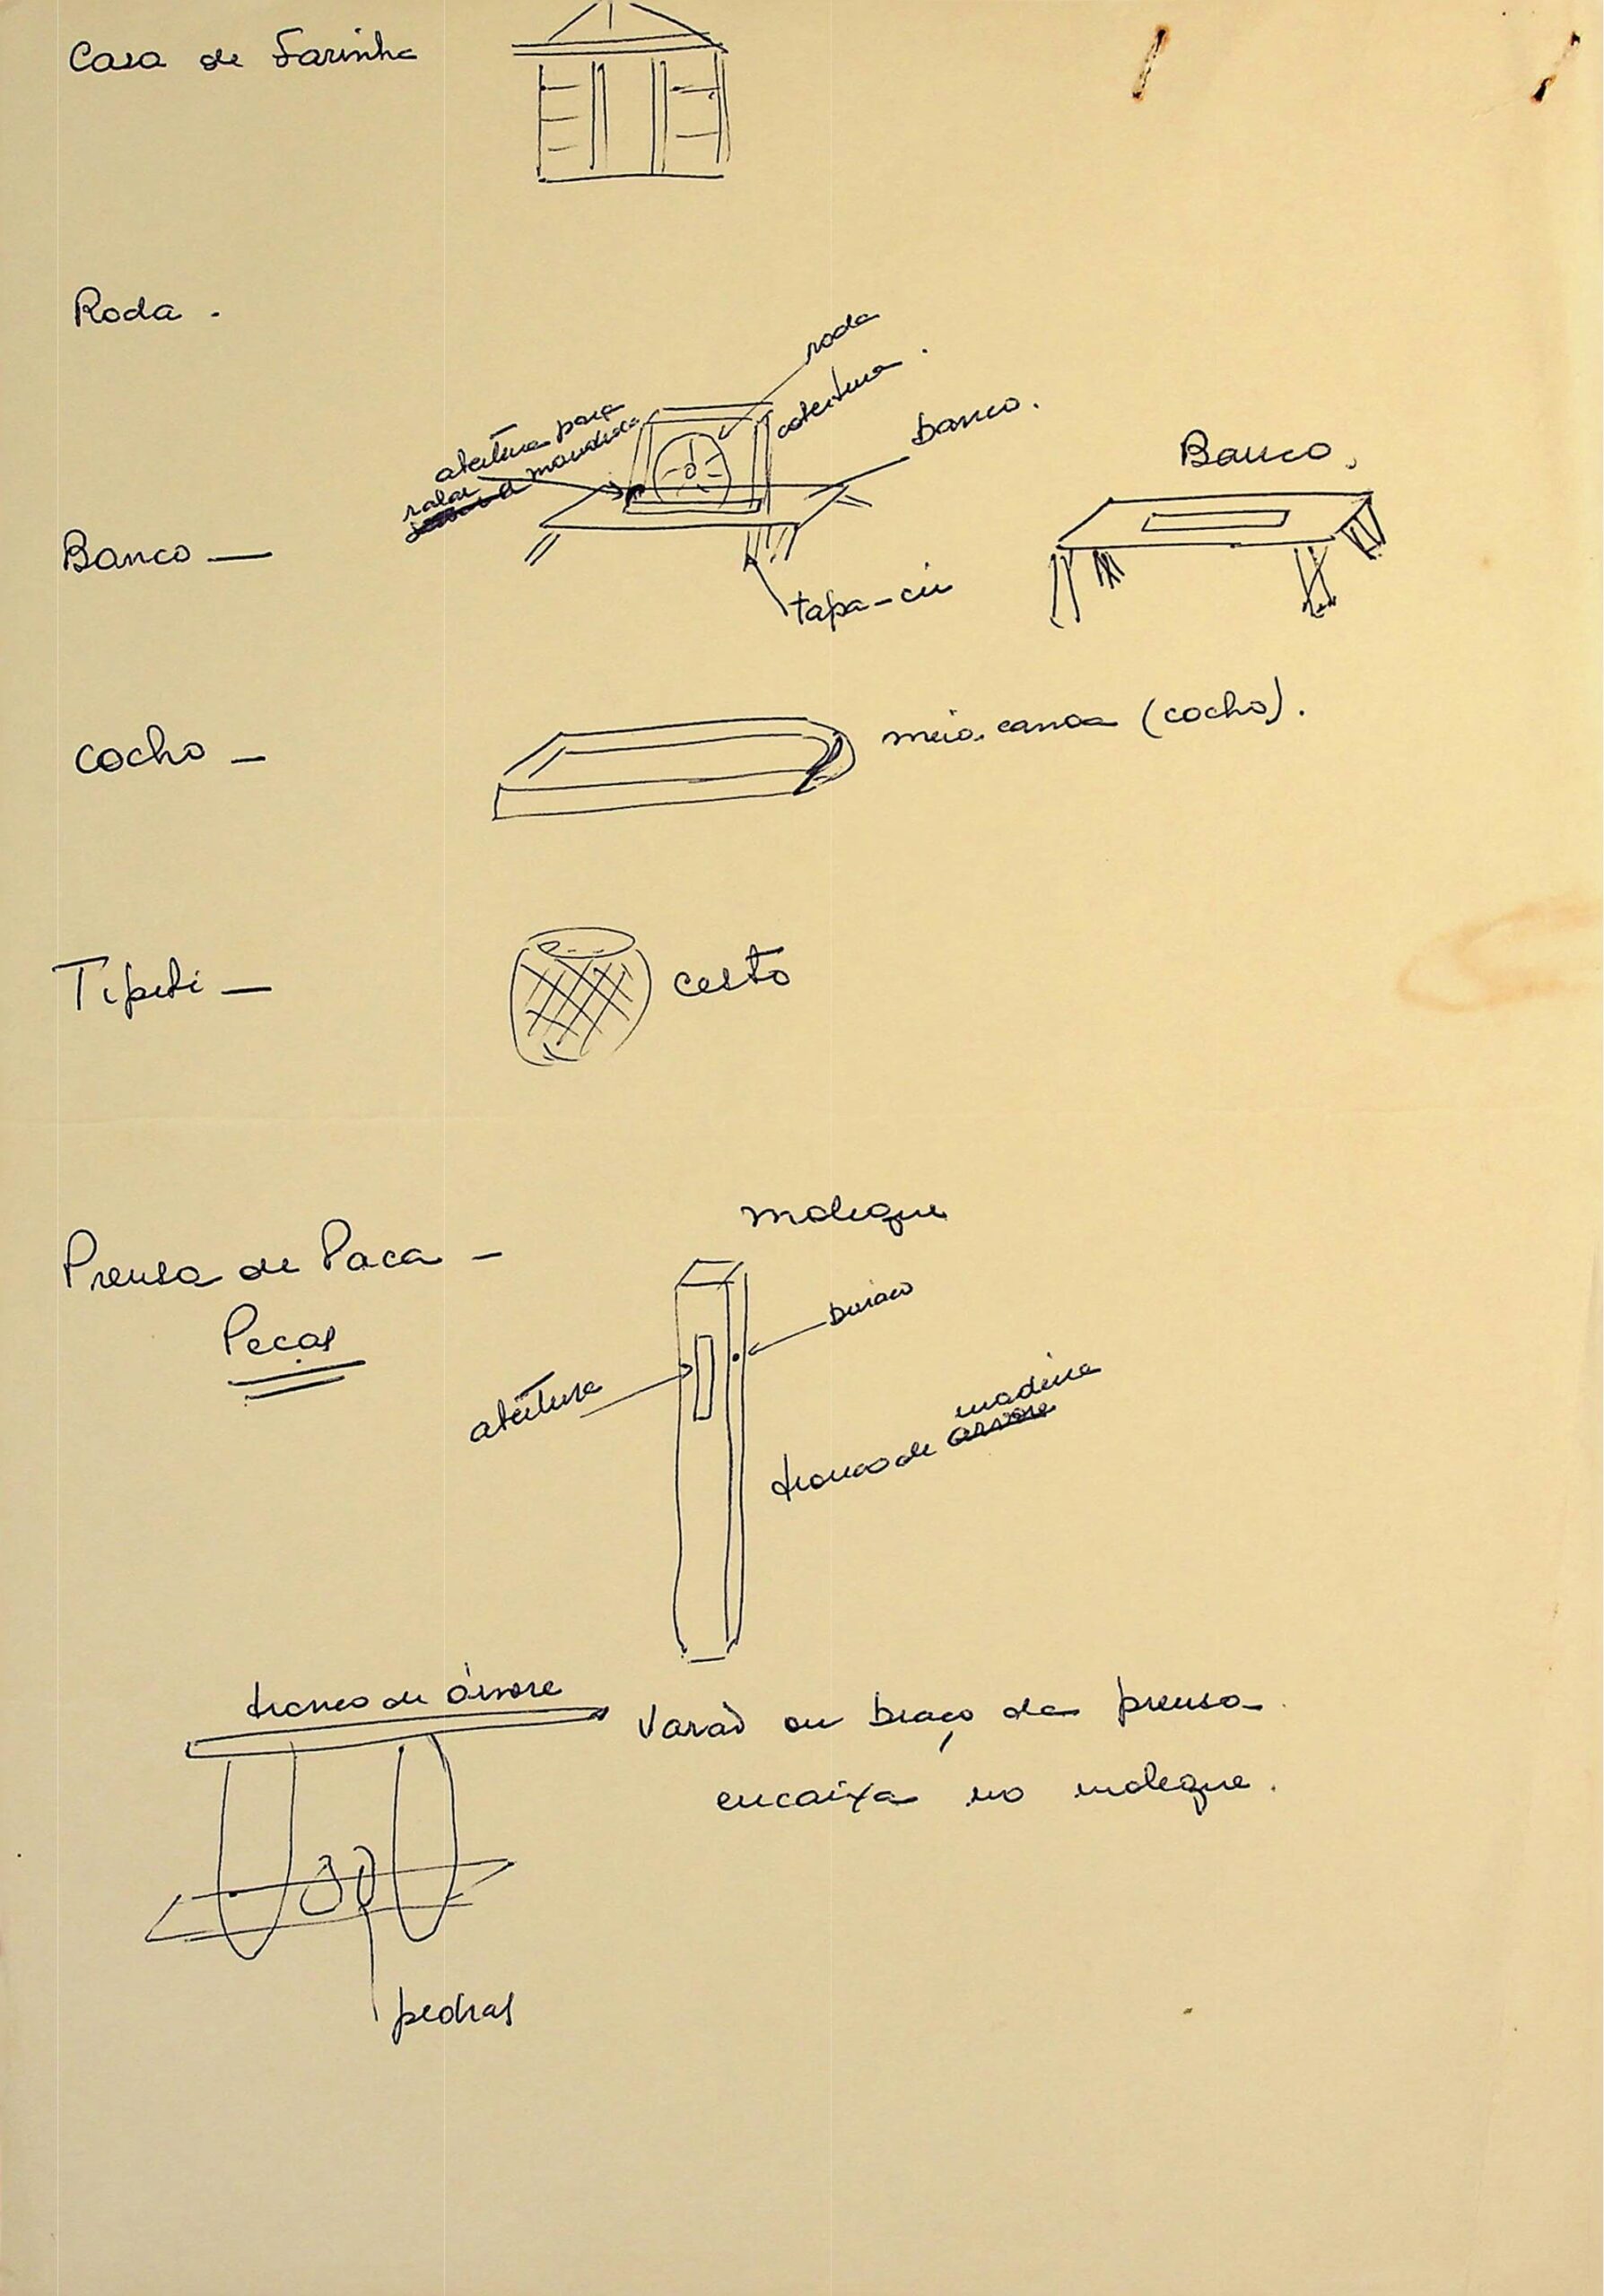 Casa de Farinha
Roda .
roda
cobertura .
banco .
abertura para
ralar mandioca
Banco .
Banco —
tapa-cu
cocho —
meia canoa (cocho) .
Tipiti —
cesto
moleque
Prensa de Paca —
Peças
buraco
abertura
madeira
tronco de árvore
tronco de árvore
Varão ou braço da prensa
encaixa no moleque .
pedras